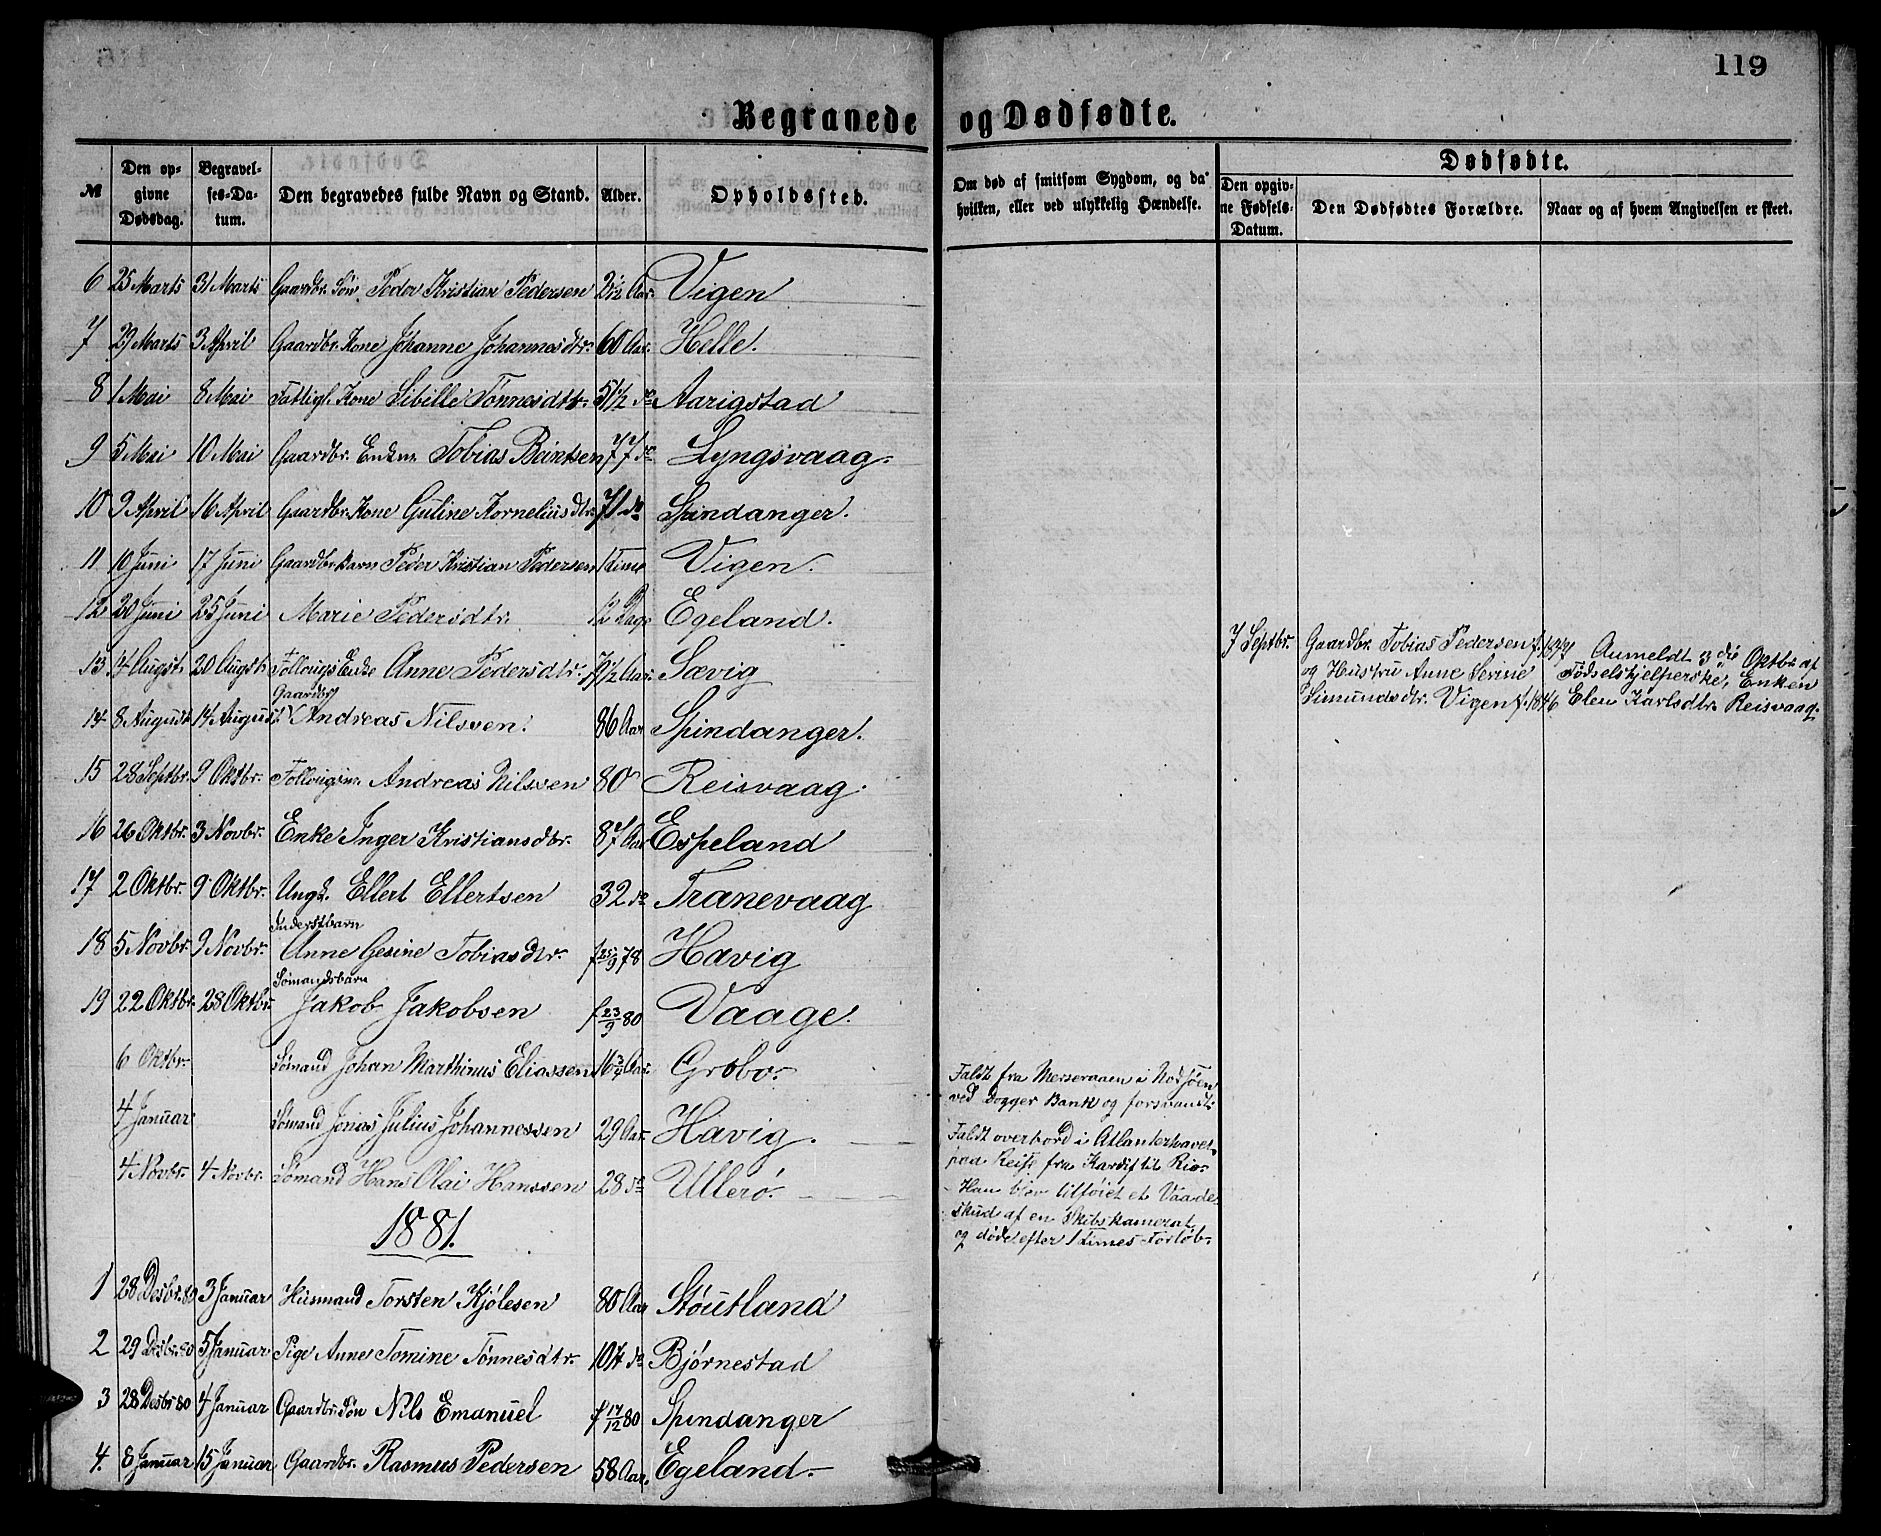 119
Begravede og Dødfødte.
№ Den op- Begravel- Den begravedes fulde Navn og Stand. Alder. Opholdssted.
givne ses-Da-
Dødsdag. tum.
Om død af smitsom Sygdom, og da
hvilken, eller ved ulykkelig Hændelse.
Dødfødte.
Den opgiv-
ne Fødsels-
Datum.
Den Dødfødtes Forældre.
Naar og af hvem Angivelsen er skeet.
6 25 Marts 31 Marts Gaardbr. Søn Peder Kristian Pedersen 2 1/2 Aar. Vigen
7 29 Marts 3 April Gaardbr. Kone Johanne Johannesdtr. 60 Aar. Helle.
8 1 Mai 8 Mai Fattigl. Kone Sibille Tønnesdtr. 51 1/2 do Aarigstad
9 5 Mai 10 Mai Gaardbr. Enkm. Tobias Berntsen 77 do Lyngsvaag.
10 9 April 16 April Gaardbr. Kone Guline Korneliusdtr. 71 do Spindanger.
11 10 Juni 17 Juni Gaardbr. Barn Peder Kristian Pedersen 1 Time Vigen.
12 20 Juni 25 Juni Marie Pedersdtr. 12 Dage Egeland.
13 14 Augst. 20 Augst. Follougs Enke Anne Pedersdtr. 79 1/2 Aar. Sævig
Gaardbr.
14 8 August 14 August Andreas Nilssen. 86 Aar Spindanger.
15 28 Septbr. 9 Oktbr. Follougsm. Andreas Nilssen 80 Reisvaag.
16 26 Oktbr. 3 Novbr. Enke Inger Kristiansdtr. 87 Aar Espeland
17 2 Oktbr. 9 Oktbr. Ungk. Ellert Ellertsen 32 do Tranevaag
Inderstbarn
18 5 Novbr. 9 Novbr. Anne Gesine Tobiasdtr. f 25/9 78 Havig
Sømandsbarn
19 22 Oktbr. 28 Oktbr. Jakob Jakobsen f 23/9 80 Vaage.
6 Oktbr. Sømand Johan Marthinus Eliassen 16 3/4 Aar. Grøbo.
4 Januar Sømand Jonas Julius Johannessen 29 Aar. Havig.
4 Novbr. 4 Novbr. Sømand Hans Olai Hanssen 28 do Ullerø.
1881.
1 28 Desbr. 80 3 Januar Husmand Torsten Kjølesen 80 Aar Støutland
2 29 Desbr. 80 5 Januar Pige Anne Tomine Tønnesdtr. 10 1/4 do Bjørnestad
3 28 Desbr 80 4 Januar Gaardbr. Søn Nils Emanuel f 17/12 80 Spindanger
4. 8 Januar 15 Januar Gaardbr. Rasmus Pedersen 58 Aar. Egeland.
7 Septbr. Gaardbr. Tobias Pedersen f. 1847 Anmeldt 3 die Oktbr. af
og Hustru Anne Serine Fødselshjelperske, Enken
Simundsdtr. Vigen f. 1846 Elen Karlsdtr. Reisvaag.
Faldt fra Merseraaen i Nordsøen
ved Dogger Bank og forsvandt.
Faldt overbord i Atlanterhavet
paa Reise fra Kardif til Rio.
Han blev tilføiet et Vaade-
skud af en Skibskamerat
og døde efter 1 Times Forløb.